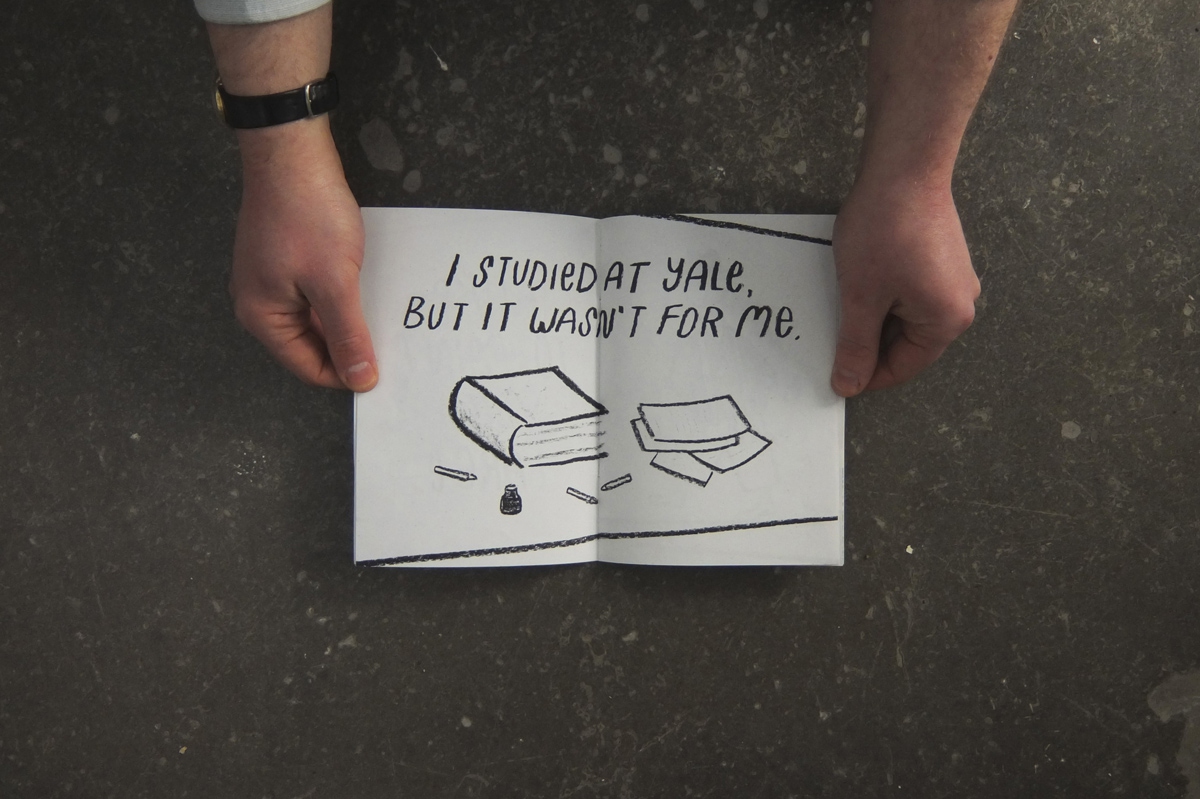 I STUDIED AT YALE,
BUT IT WASN'T FOR ME.